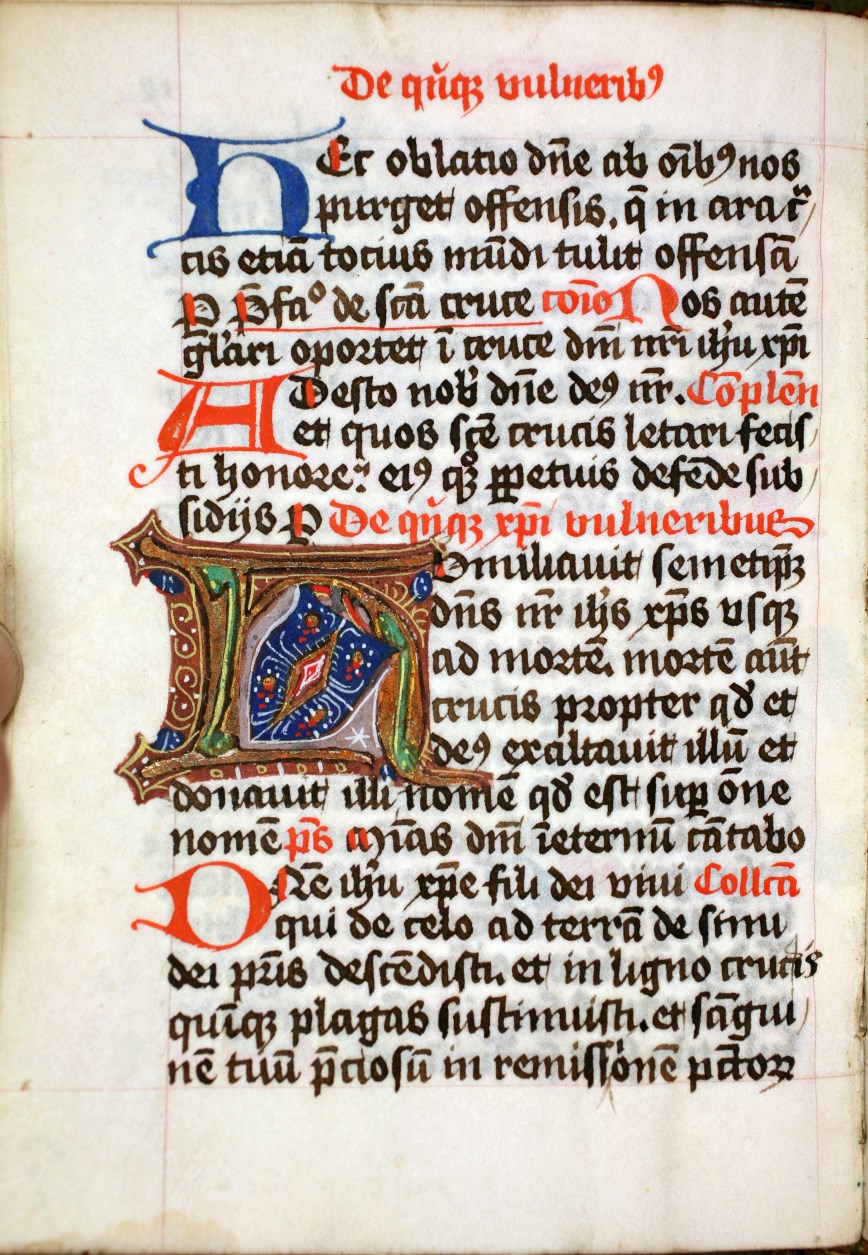 De qu̅q̨ vulnerib⁹
HEc oblatio dn̅e ab oi̅b⁹ nos
purget offensis. q̅ in ara c̅r
cis etia̅ tocius mu̅di tulit offensa̅
P P̅fa⁰ de sc̅a cruce co̅io Nos aute̅
gl̅ari oportet i̅ cruce dn̅i nr̅i ih̅u xp̅i
ADesto nob̅ dn̅e de⁹ nr̅. Co̅plen̅
et quos sc̅e crucis letari fecis
ti honore: ei⁹ qͦꝫ ꝑpetuis defe̅de sub
sidijs P De qu̅q̨ xp̅i vulneribus
HVmiliauit semetip̅ꝫ
dn̅s nr̅ ih̅s xp̅s vsqꝫ
ad morte̅. morte̅ aut̅
crucis propter qd̅ et
de⁹ exaltauit illu̅ et
donauit illi nome̅ qd̅ est suꝑ o̅ne
nome̅ p̅s Mi̅as dn̅i i̅eternu̅ ca̅tabo
DNe̅ ih̅u xp̅e fili dei viui Collc̅a
qui de celo ad terra̅ de sinu
dei pr̅is desce̅disti. et in ligno crucis
qui̅qꝫ plagas sustinuisti. et sa̅gui
ne̅ tuu̅ p̅ciosu̅ in remissione̅ pc̅toꝝ